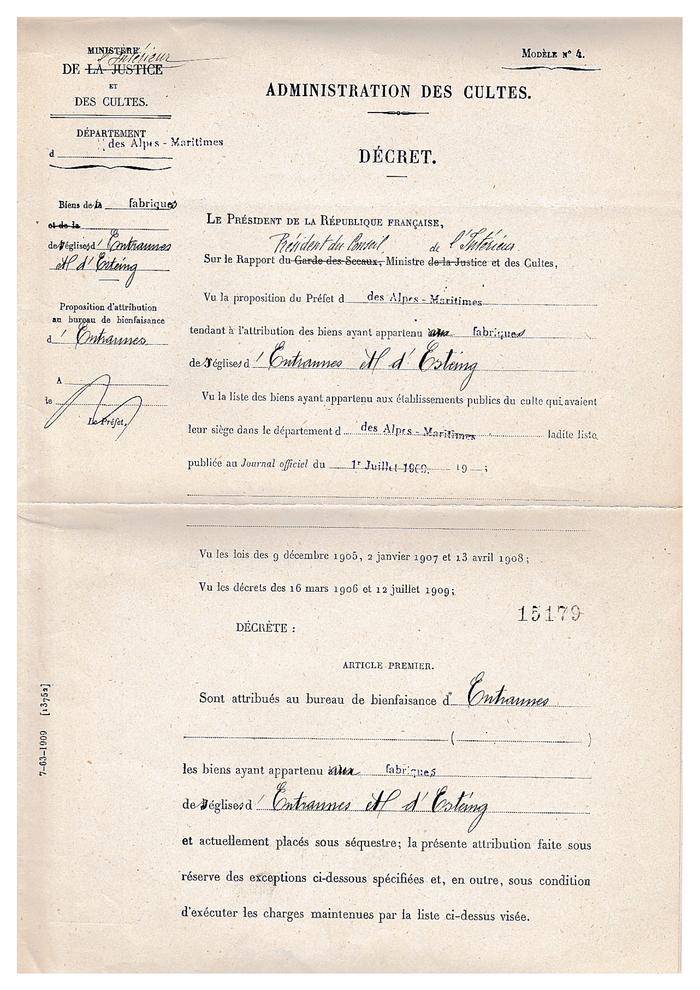 MINISTÈRE
l'Intérieur
DE LA JUSTICE
ET
DES CULTES.
DÉPARTEMENT
d des Alpes - Maritimes
Biens de la fabriques
et de la
des églises d' Entraunes
et d' Esteing
Proposition d'attribution
au bureau de bienfaisance
d' Entraunes
A
le
Le Préfet,
MODÈLE N° 4.
ADMINISTRATION DES CULTES.
DÉCRET.
LE PRÉSIDENT DE LA RÉPUBLIQUE FRANÇAISE,
Président du Conseil de l'Intérieur
Sur le Rapport du Garde des Sceaux, Ministre de la Justice et des Cultes,
Vu la proposition du Préfet d des Alpes - Maritimes
tendant à l'attribution des biens ayant appartenu aux fabriques
des églises d' Entraunes et d' Esteing
Vu la liste des biens ayant appartenu aux établissements publics du culte qui avaient
leur siège dans le département d des Alpes - Maritimes ladite liste
publiée au Journal officiel du 1r Juillet 1909. 19 ;
Vu les lois des 9 décembre 1905, 2 janvier 1907 et 13 avril 1908;
Vu les décrets des 16 mars 1906 et 12 juillet 1909;
15179
DÉCRÈTE :
ARTICLE PREMIER.
Sont attribués au bureau de bienfaisance d' Entraunes
( )
les biens ayant appartenu aux fabriques
des églises d' Entraunes et d' Esteing
et actuellement placés sous séquestre; la présente attribution faite sous
réserve des exceptions ci-dessous spécifiées et, en outre, sous condition
d'exécuter les charges maintenues par la liste ci-dessus visée.
7-63-1909 [13752]